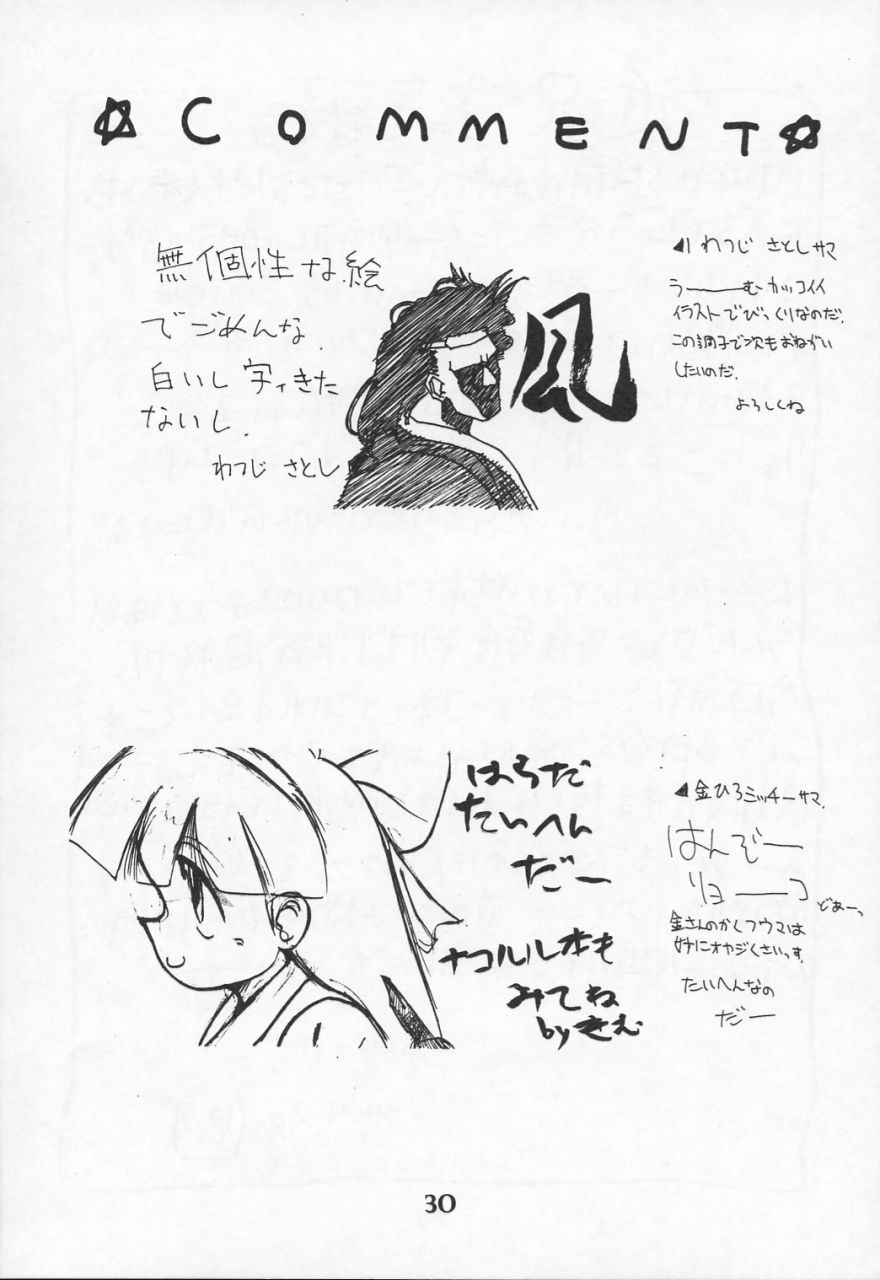 COMMENT
無個性な絵
でごめんな.
白いし 字ィきた
ないし.
わつじ さとし
風
◀ わつじ さとしサマ
うーーむ カッコイイ
イラストでびっくりなのだ.
この調子で次もおねがい
したいのだ.
よろしくね
はらだ
たいへん
だー
ナコルル本も
みてね
by きむ
◀ 金ひろミッチーサマ.
はんぞー
リョーーコ
どあーっ
金さんのかくフウマは
妙にオヤジくさいっす.
たいへんなの
だー
30